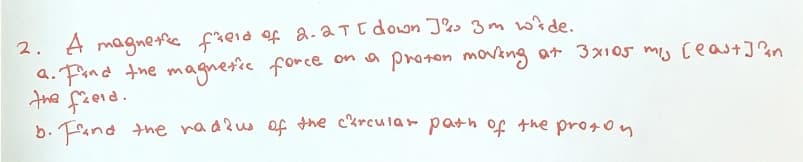 2. A magnetic field of 2.2T [down] is 3m wide.
a. Find the magnetic force on a proton moving at 3x105 m/s [east] in
the field.
b. Find the radius of the circular path of the proton